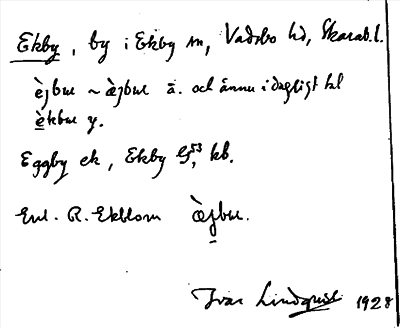 Ekby, by i Ekby sn, Vadsbo hd, Skarab. l.
èjbɯ ~ æ̀jbɯ ä. och ännu i dagligt tal
èkbɯ y.
Eggby ek, Ekby kb.
Enl. R. Ekblom æ̀jbɯ.
Ivar Lindquist 1928